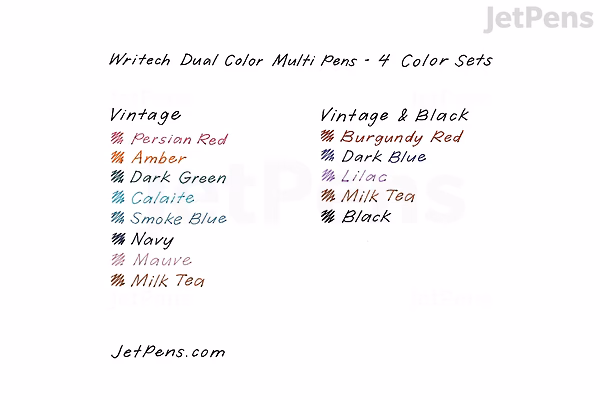 JetPens
Writech Dual Color Multi Pens - 4 Color Sets
Vintage
Persian Red
Amber
Dark Green
Calaite
Smoke Blue
Navy
Mauve
Milk Tea
Vintage & Black
Burgundy Red
Dark Blue
Lilac
Milk Tea
Black
JetPens
JetPens.com